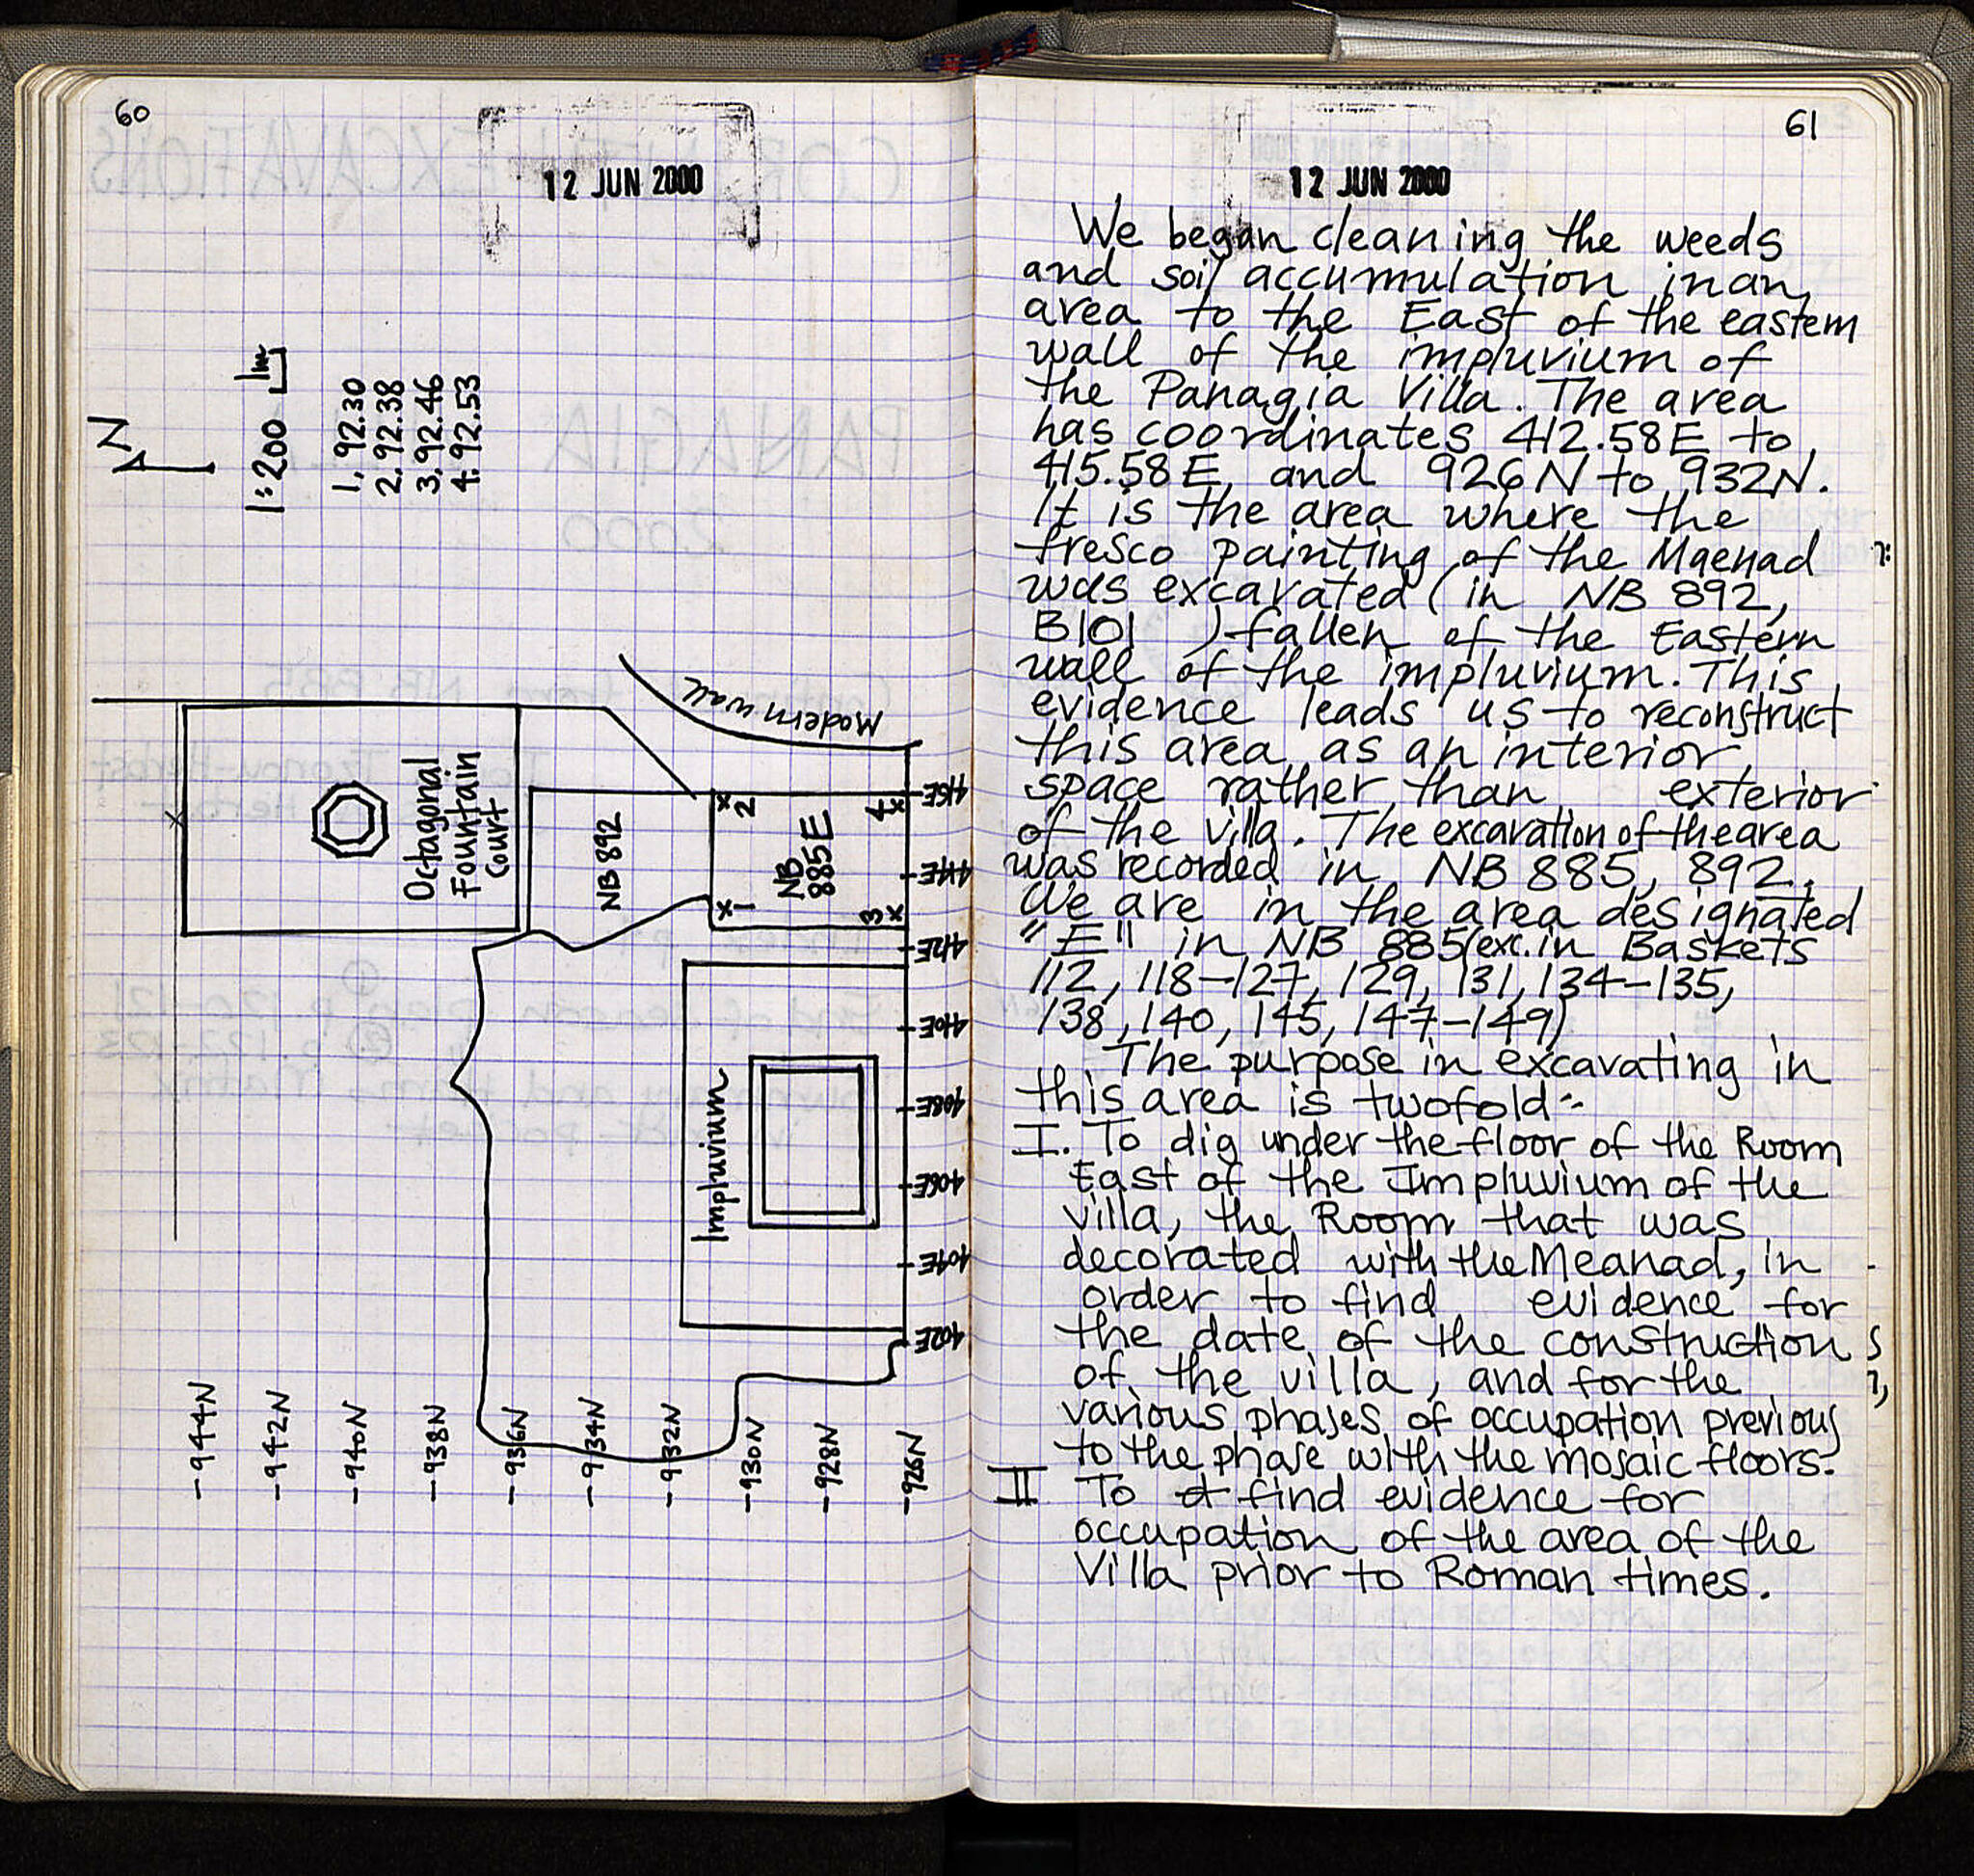 60
12 JUN 2000
N
1:200 1m
1. 92.30
2. 92.38
3. 92.46
4. 92.53
Modern wall
Octagonal
Fountain
Court
NB 892
NB
885E
1
2
3
4
Impluvium
416E
414E
412E
410E
408E
406E
404E
402E
-944N
-942N
-940N
-938N
-936N
-934N
-932N
-930N
-928N
-926N
61
12 JUN 2000
We began cleaning the weeds
and soil accumulation in an
area to the East of the eastern
wall of the impluvium of
the Panagia Villa. The area
has coordinates 412.58E to
415.58E and 926N to 932N.
It is the area where the
fresco painting of the Maenad
was excavated (in NB 892,
B101 ) fallen of the Eastern
wall of the impluvium. This
evidence leads us to reconstruct
this area as an interior
space rather than exterior
of the villa. The excavation of the area
was recorded in NB 885, 892.
We are in the area designated
"E" in NB 885 (exc. in Baskets
112, 118-127, 129, 131, 134-135,
138, 140, 145, 147-149)
The purpose in excavating in
this area is twofold:-
I. To dig under the floor of the Room
East of the Impluvium of the
villa, the Room that was
decorated with the Meanad, in
order to find evidence for
the date of the construction
of the villa, and for the
various phases of occupation previous
to the phase with the mosaic floors.
II To find evidence for
occupation of the area of the
Villa prior to Roman times.